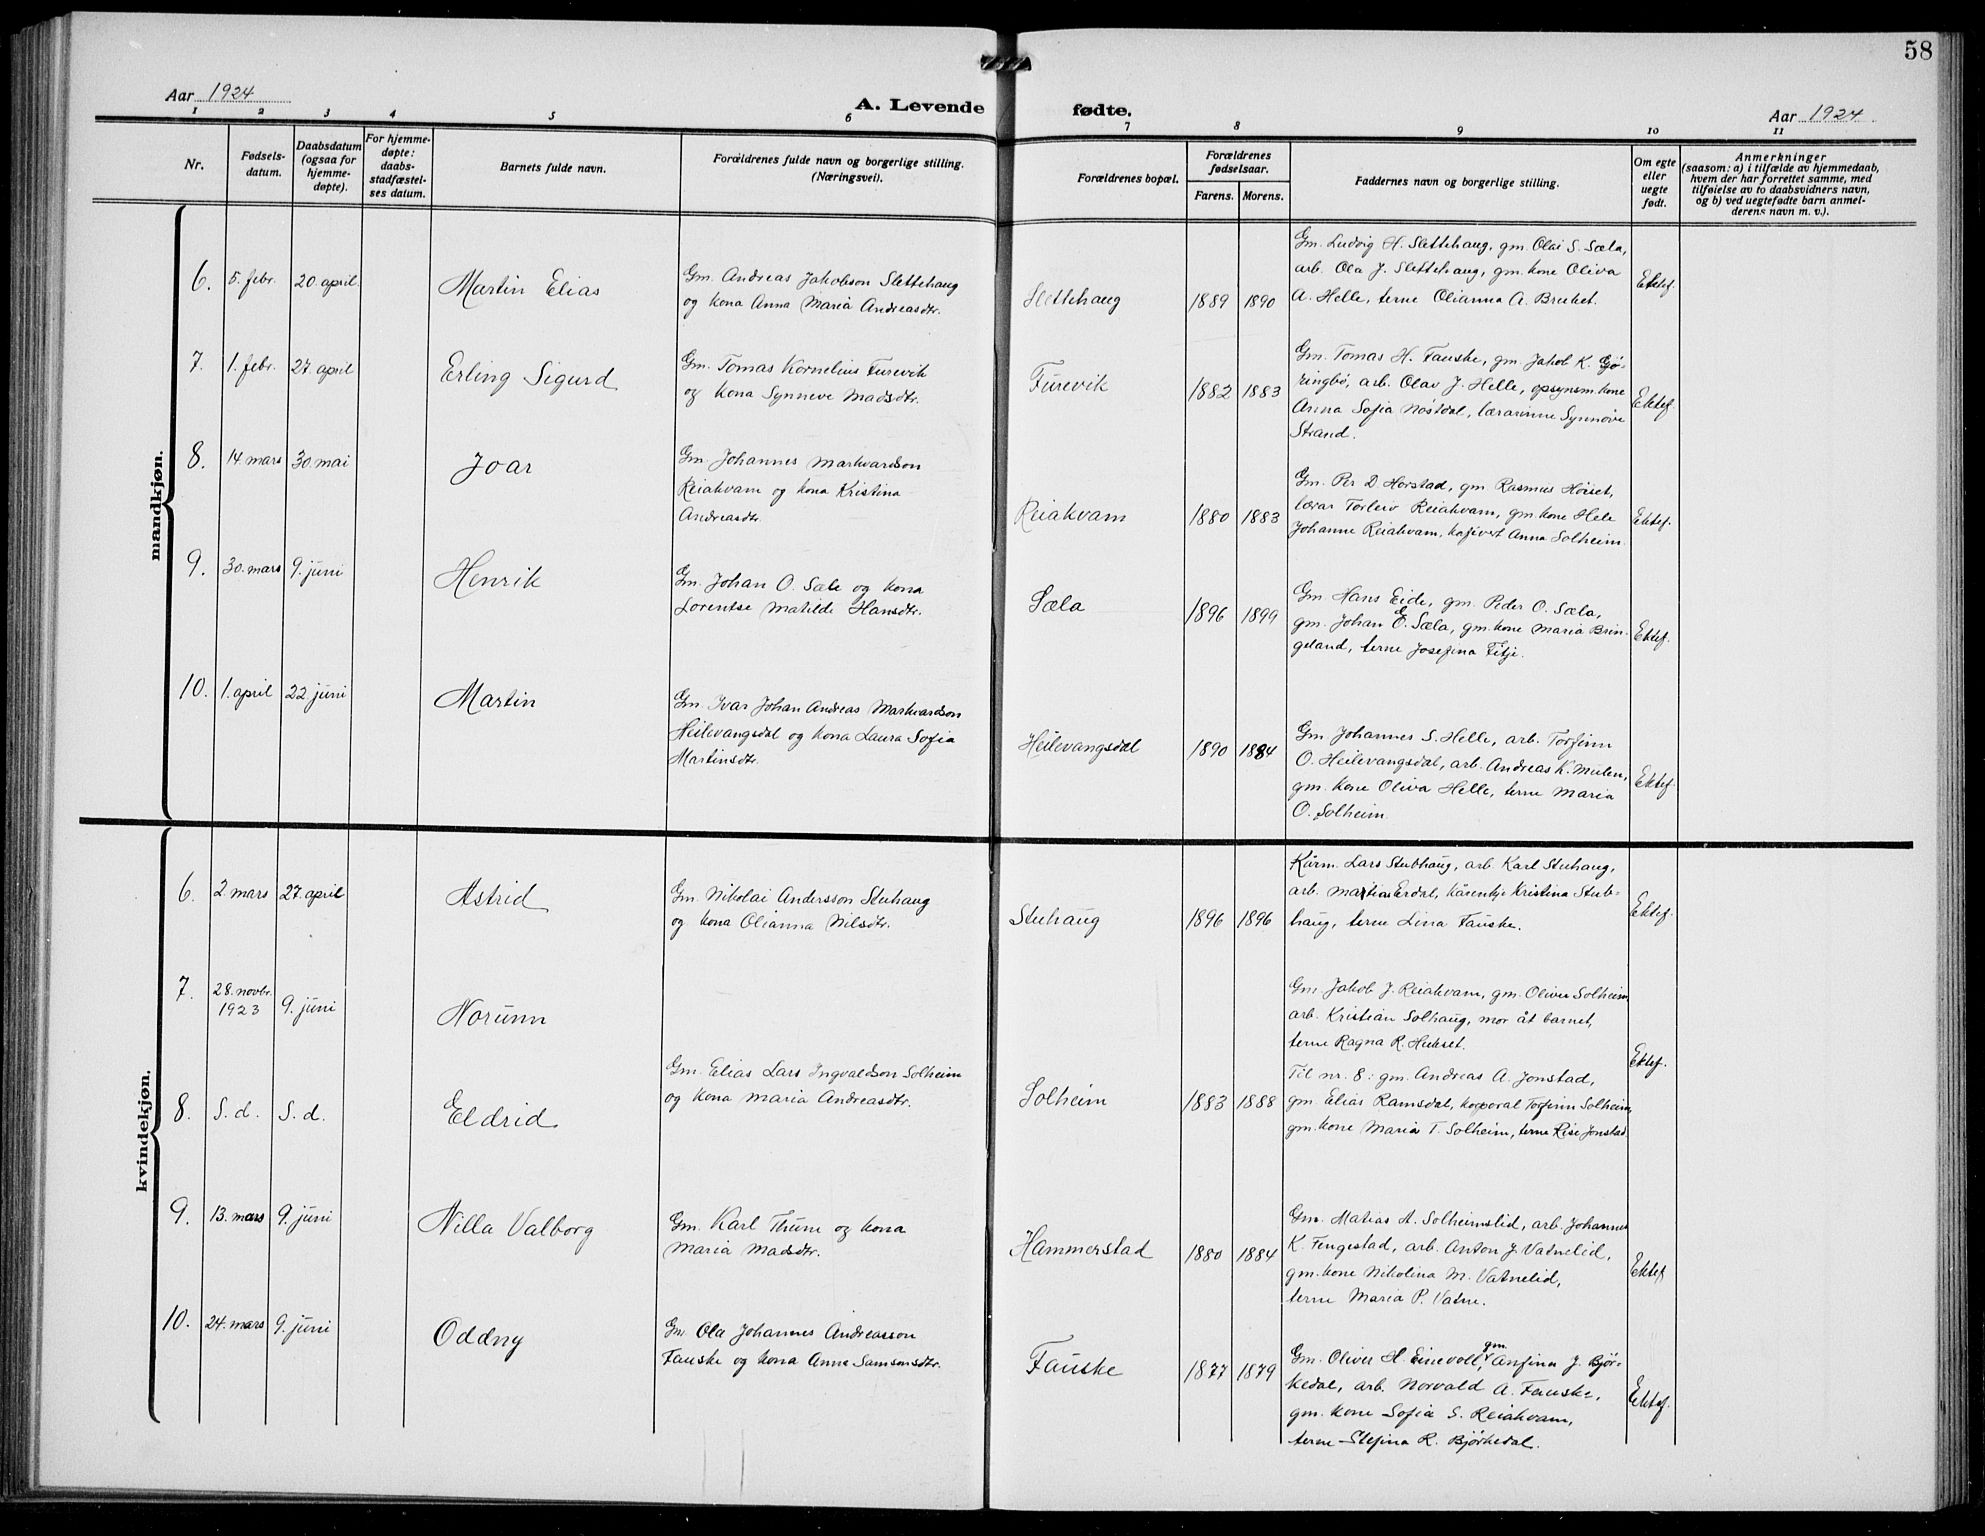 58
Aar 1924
A. Levende
fødte.
Aar 1924
1 2 3 4 5 6 7 8 9 10 11
Nr.
Fødsels-
datum.
Daabsdatum
(ogsaa for
hjemme-
døpte).
For hjemme-
døpte:
daabs-
stadfæstel-
ses datum.
Barnets fulde navn.
Forældrenes fulde navn og borgerlige stilling.
(Næringsvei).
Forældrenes bopæl.
Forældrenes
fødselsaar.
Farens. Morens.
Faddernes navn og borgerlige stilling.
Om egte
eller
uegte
født.
Anmerkninger
(saasom: a) i tilfælde av hjemmedaab,
hvem der har forrettet samme, med
tilføielse av to daabsvidners navn,
og b) ved uegtefødte barn anmel-
derens navn m. v.).
mandkjøn.
6. 5. febr. 20. april Martin Elias
Gm. Andreas Jakobson Slettehaug
og kona Anna Maria Andreasdtr.
Slettehaug 1889 1890
Gm. Ludvig H. Slettehaug, gm. Olai S. Sæla,
arb. Ola J. Slettehaug, gm. kone Oliva
A. Helle, terne Olianna A. Bruket.
Ektef.
7. 1. febr. 27. april Erling Sigurd
Gm. Tomas Kornelius Furevik
og kona Synneve Madsdtr.
Furevik 1882 1883
Gm. Tomas H. Fauske, gm. Jakob K. Gjø-
ringbø, arb. Olav J. Helle, opsynsm. kone
Anna Sofia Nøstdal, lærarinne Synnøve
Strand.
Ektef.
8. 14. mars 30. mai Joar
Gm. Johannes Markvardson
Reiakvam og kona Kristina
Andreasdtr.
Reiakvam 1880 1883
Gm. Per D Horstad, gm. Rasmus Høiset,
lærar Torleiv Reiakvam, gm. kone Hele
Johanne Reiakvam, kafivert Anna Solheim.
Ektef.
9. 30. mars 9. juni Henrik
Gm. Johan O. Sæle og kona
Lorentse Matilde Hansdtr.
Sæla 1896 1899
Gm. Hans Eide, gm. Peder O. Sæla,
gm. Johan E. Sæla, gm. kone Maria Brin-
geland, terne Josefina Fitje.
Ektef.
10. 1. april 22 juni Martin
Gm. Ivar Johan Andreas Markvardson
Heilevangsdal og kona Laura Sofia
Martinsdtr.
Heilevangsdal 1890 1884
Gm. Johannes S. Helle, arb. Torfinn
O. Heilevangsdal, arb. Andreas K. Mulen,
gm. kone Oliva Helle, terne Maria
O. Solheim.
Ektef.
kvindekjøn.
6. 2 mars 27. april Astrid
Gm. Nikolai Andersson Stuhaug
og kona Olianna Nilsdtr.
Stuhaug 1896 1896
Kårm. Lars Stubhaug, arb. Karl Stuhaug,
arb. Martin Erdal, kårenkje Kristina Stub-
haug, terne Lina Fauske.
Ektef.
7. 28. novbr.
1923 9. juni Norunn
Gm. Jakob J. Reiakvam, gm. Oliver Solheim,
arb. Kristian Solhaug, mor åt barnet,
terne Ragna R. Hukset.
8. S. d. S. d. Eldrid
Gm. Elias Lars Ingvaldson Solheim
og kona Maria Andreasdtr.
Solheim 1883 1888
Til nr. 8: gm. Andreas A. Jonstad,
gm. Elias Ramsdal, korporal Torfinn Solheim,
gm. kone Maria T. Solheim, terne Rise Jonstad.
Ektef.
9. 13. mars 9. juni Nilla Valborg
Gm. Karl Thune og kona
Maria Madsdtr.
Hammerstad 1880 1884
Gm. Matias A. Solheimslid, arb. Johannes
K. Fengestad, arb. Anton J. Vatnelid,
gm. kone Nikolina M. Vatnelid,
terne Maria P. Vatne.
Ektef
10. 24. mars 9. juni Oddny
Gm. Ola Johannes Andreasson
Fauske og kona Anna Samsonsdtr.
Fauske 1877 1879
Gm. Oliver H. Einevoll, gm. Anfina J. Bjør-
kedal, arb. Norvald A. Fauske,
gm. kone Sofia S. Reiakvam,
terne Stefina R. Bjørkedal.
Ektef.